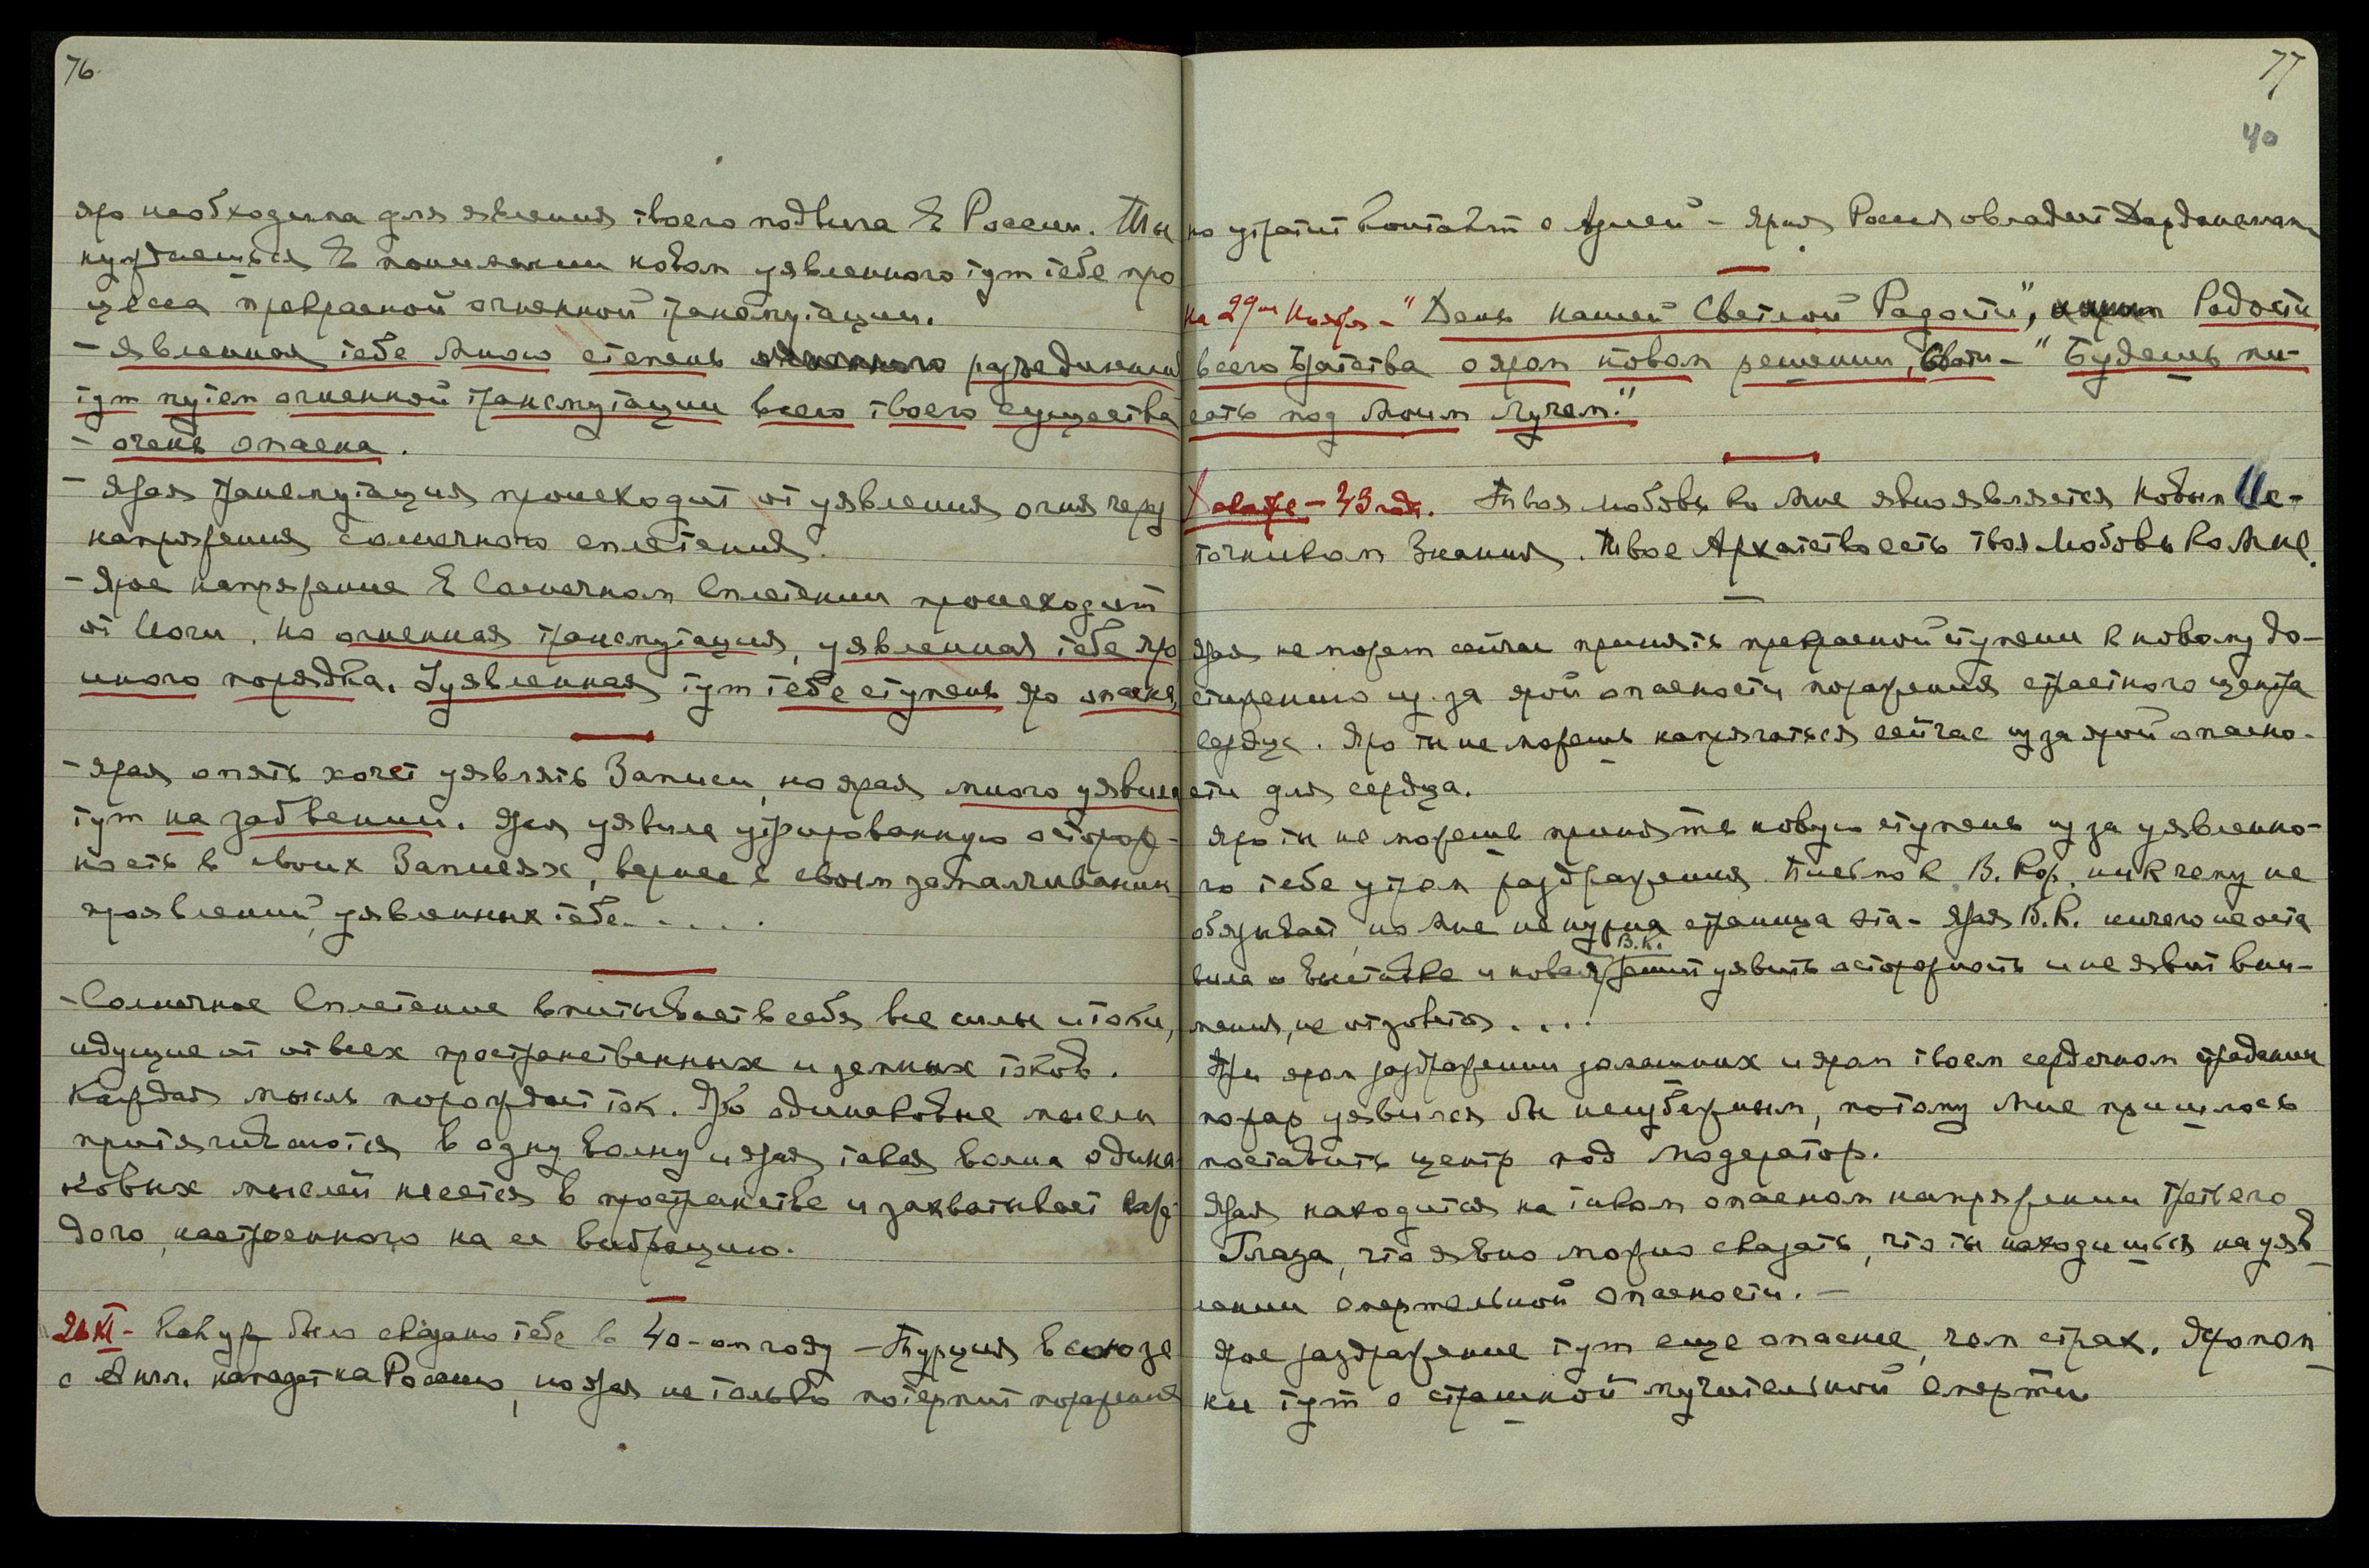 76
яро необходима для явления твоего подвига в России. Ты
нуждаешься в понимании новом уявленного тут тебе про
цесса прекрасной огненной трансмутации.
- явленная тебе Мною степень разъединения
тут путем огненной трансмутации всего твоего существа
- очень опасна.
- Ярая трансмутация происходит от уявления огня через
напряжения солнечного сплетения.
- Ярое напряжение в Солнечном Сплетении происходит
от Йоги. Но огненная трансмутация, уявленная тебе яро
иного порядка. Уявленная тут тебе ступень яро опасна,
- ярая опять хочет уявлять Записи, но ярая много уявила
тут на забвении. Ярая уявила утрированную осторож-
ность в своих Записях, вернее в своем замалчивании
проявлений, уявленных тебе. . . . .
- Солнечное Сплетение впитывает в себя все силы и токи,
идущие от от всех пространственных и земных токов.
Каждая мысль порождает ток. Яро одинаковые мысли
притягиваются в одну волну и ярая такая волна одина
ковых мыслей несется в пространстве и захватывает каж-
дого, настроенного на ее вибрацию.
26 XI - было сказано тебе в 40-ом году - Турция в союзе
с Англ. нападет на Россию, но ярая не только потерпит поражение
77
40
но утратит контакт с Азией - ярая Россия овладеет Дарданеллами
на 29ое Ноября - "День нашей Светлой Радости", Радости
всего Братства о яром новом решении, - "Будешь пи-
сать под Моим Лучем."
- 43 год. Твоя любовь ко Мне явно является Новым Ис-
точником Знания. Твое Архатство есть твоя Любовь ко Мне.
Ярая не может сейчас принять прекрасной ступени к новому до-
стижению из-за ярой опасности поражения страстного центра
сердца. Яро ты не можешь напрягаться сейчас из за ярой опасно-
сти для сердца.
Яро ты не можешь принять новую ступень из за уявленно-
го тебе утром раздражения. Письмо к В. Кор. ни к чему не
обязывает, но Мне не нужна страница эта - Ярая В.К. ничего не оста
В.К.
вила о выставке и новая решит уявить осторожность и не явит вни-
мания, не отзовется. . . .
При яром раздражении домашних и яром твоем сердечном страдании
пожар уявился бы неизбежным, потому Мне пришлось
поставить центр под модератор.
Ярая находится на таком опасном напряжении третьего
Глаза, что явно можно сказать, что ты находишься на уяв
лении смертельной опасности. -
Ярое раздражение тут еще опаснее, чем страх. Яро пом
ни тут о страшной мучительной смерти